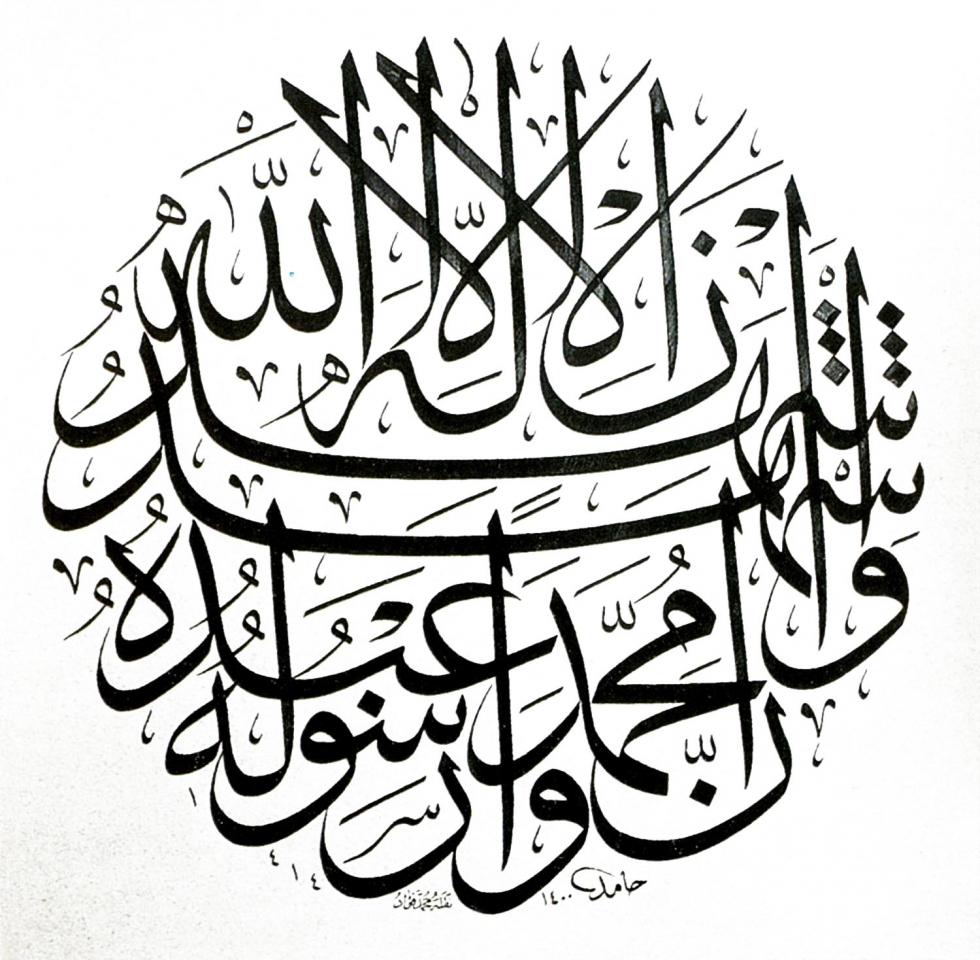 أشهد أن لا إله إلا الله
وأشهد أن محمدا عبده ورسوله
حامد ١٤٠٠
نقله محمد فؤاد
١٤١٤